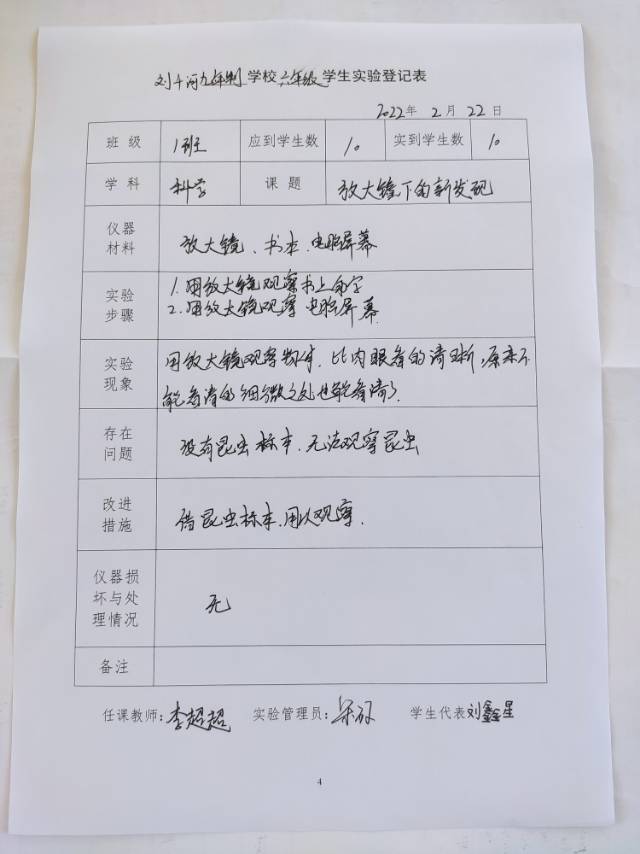 刘千河九年制学校六年级学生实验登记表
2022年2月22日
班级 1班 应到学生数 10 实到学生数 10
学科 科学 课题 放大镜下的新发现
仪器材料 放大镜、书本、电脑屏幕
实验步骤 1.用放大镜观察书上的字
2.用放大镜观察电脑屏幕
实验现象 用放大镜观察物体,比肉眼看的清晰,原来不
能看清的细微之处也能看清了.
存在问题 没有昆虫标本,无法观察昆虫
改进措施 借昆虫标本,用以观察.
仪器损坏与处理情况 无
备注
任课教师:李超超 实验管理员: 学生代表刘鑫星
4